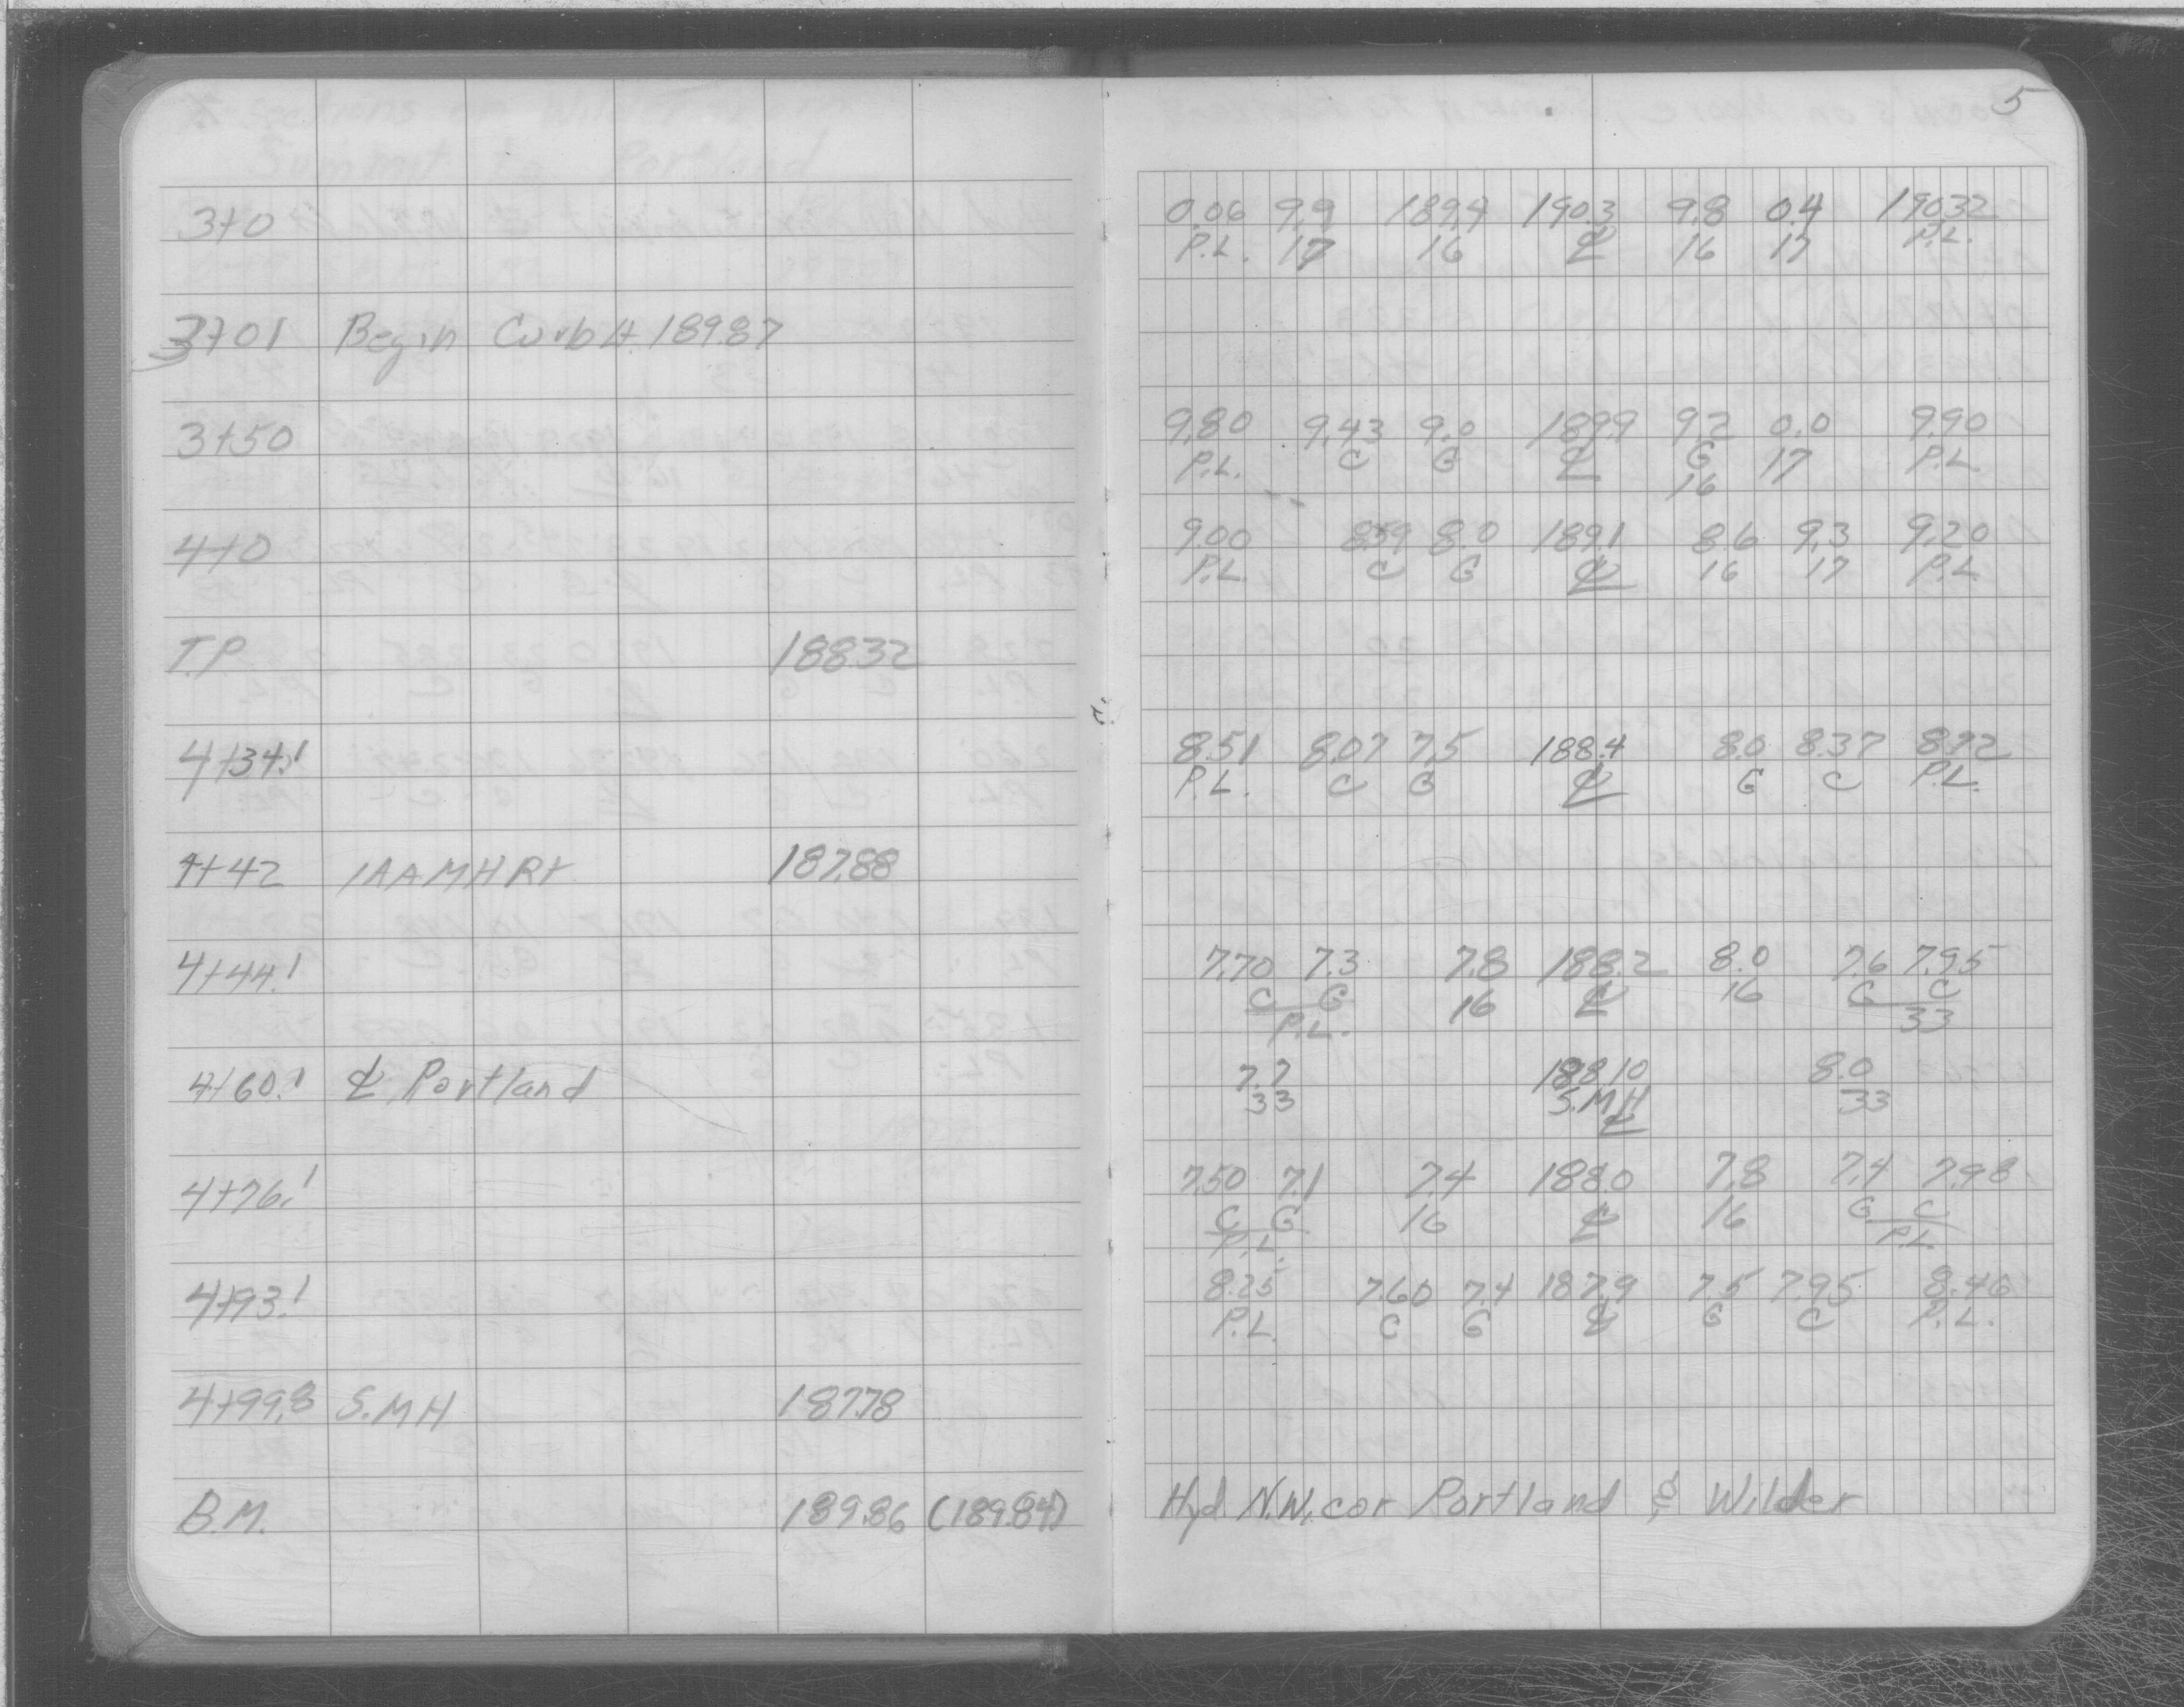 5
3+0 0.06 9.9 189.4 190.3 9.8 0.4 190.32
P.L. 17 16 ℄ 16 17 P.L.
3+01 Begin Curb Lt. 189.87
3+50 9.80 9.43 9.0 189.9 9.2 0.0 9.90
P.L. C G ℄ G 17 P.L.
16
4+0 9.00 8.59 8.0 189.1 8.6 9.3 9.20
P.L. C G ℄ 16 17 P.L.
T.P. 188.32
4+34.1 8.51 8.07 7.5 188.4 8.0 8.37 8.72
P.L. C G ℄ G C P.L.
4+42 187.88
4+44.1 7.70 7.3 7.8 188.2 8.0 7.6 7.95
C G 16 ℄ 16 G C
P.L. 33
4+60.1 ℄ Portland 7.7 188.10 8.0
33 S.MH 33
℄
4+76.1 7.50 7.1 7.4 188.0 7.8 7.4 7.98
C G 16 ℄ 16 G C
P.L. P.L.
4+93.1 8.25 7.60 7.4 187.9 7.5 7.95 8.46
P.L. C G ℄ G C P.L.
4+99.8 S.MH 187.78
B.M. 189.86 (189.84) Hyd. N.W. cor Portland & Wilder